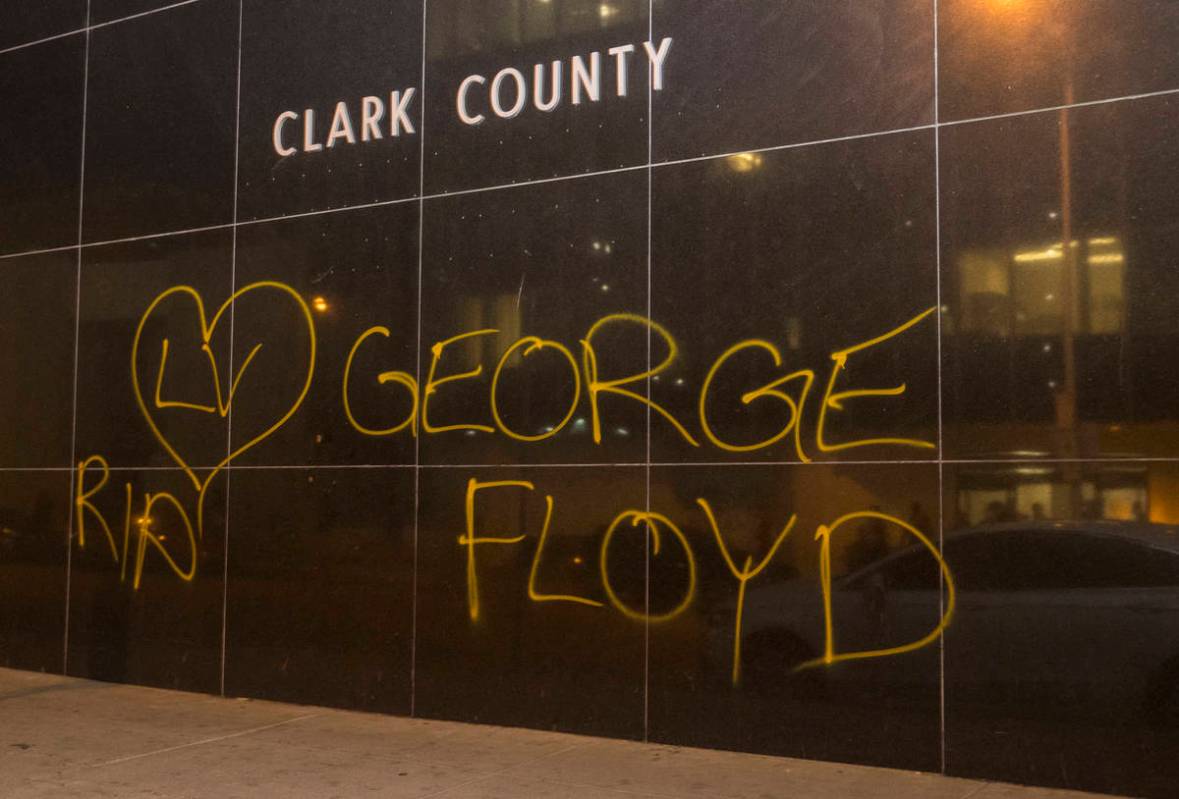 CLARK COUNTY
LV GEORGE
RIP FLOYD